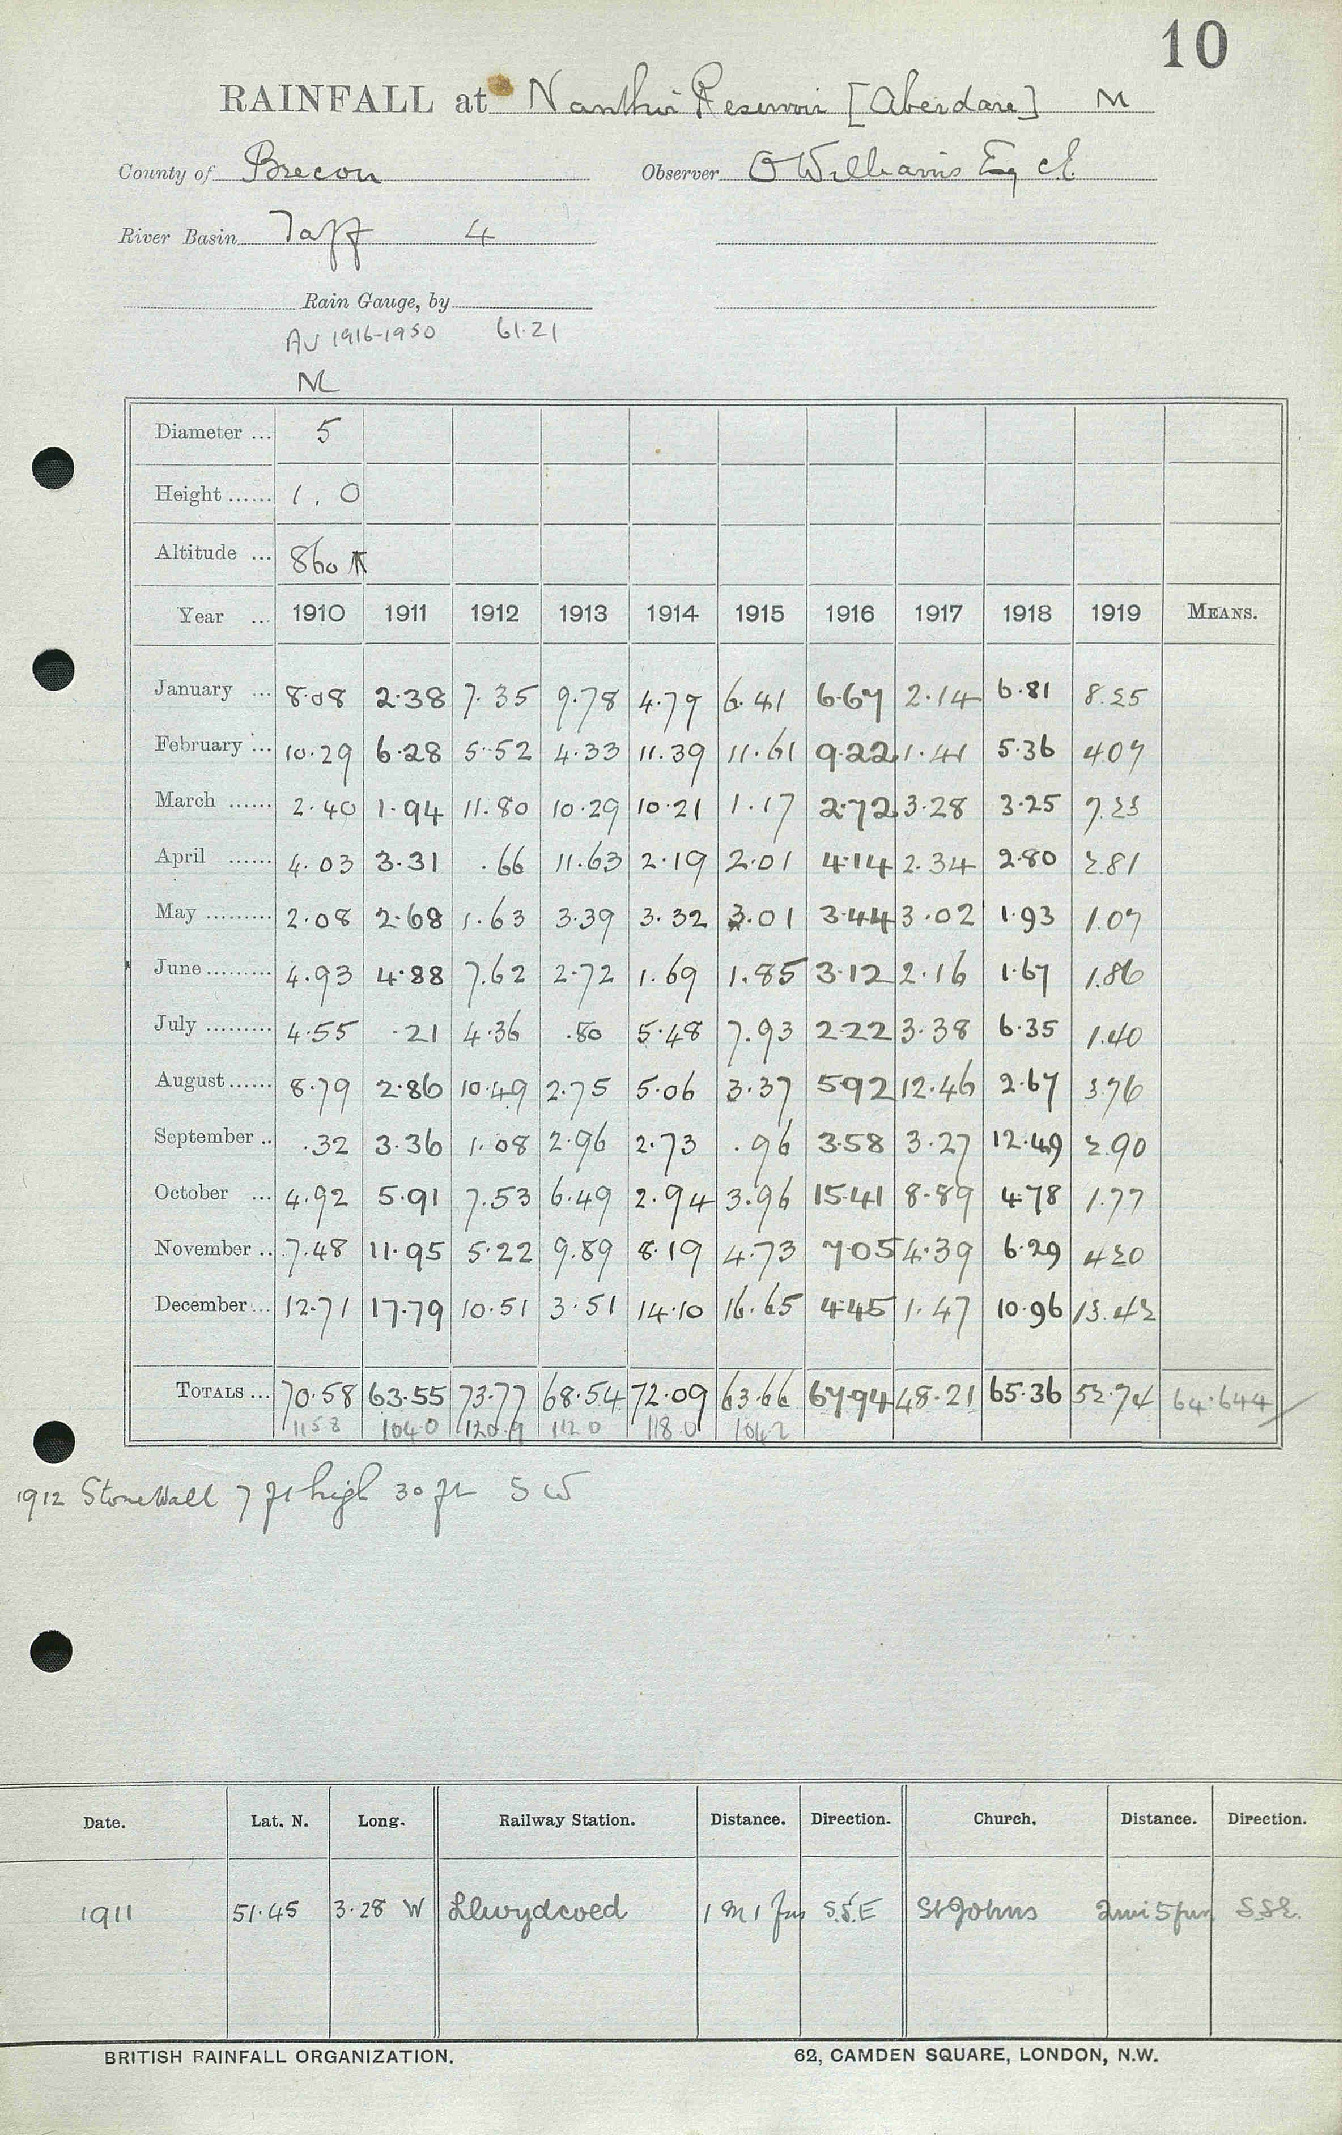 10
RAINFALL at Nanthir Reservoir [Aberdare] M
County of Brecon Observer O Williams Esq C.E.
River Basin Taff 4
Rain Gauge, by
Av 1916-1950 61.21
M
Diameter ... 5
Height ...... 1.0
Altitude ... 860
Year ... 1910 1911 1912 1913 1914 1915 1916 1917 1918 1919 MEANS.
January ... 8.08 2.38 7.35 9.78 4.79 6.41 6.67 2.14 6.81 8.25
February ... 10.29 6.28 5.52 4.33 11.39 11.61 9.22 1.41 5.36 4.07
March ...... 2.40 1.94 11.80 10.29 10.21 1.17 2.72 3.28 3.25 7.23
April ...... 4.03 3.31 .66 11.63 2.19 2.01 4.14 2.34 2.80 2.81
May ......... 2.08 2.68 1.63 3.39 3.32 3.01 3.44 3.02 1.93 1.07
June ......... 4.93 4.88 7.62 2.72 1.69 1.85 3.12 2.16 1.67 1.86
July ......... 4.55 .21 4.36 .80 5.48 7.93 2.22 3.38 6.35 1.40
August ...... 8.79 2.86 10.49 2.75 5.06 3.37 5.92 12.46 2.67 3.76
September .. .32 3.36 1.08 2.96 2.73 .96 3.58 3.27 12.49 2.90
October ... 4.92 5.91 7.53 6.49 2.94 3.96 15.41 8.89 4.78 1.77
November .. 7.48 11.95 5.22 9.89 8.19 4.73 7.05 4.39 6.29 4.20
December ... 12.71 17.79 10.51 3.51 14.10 16.65 4.45 1.47 10.96 13.42
TOTALS ... 70.58 63.55 73.77 68.54 72.09 63.66 67.94 48.21 65.36 52.74 64.644
115.8 104.0 120.9 112.0 118.0 104.2
1912 Stone Wall 7 ft high 30 ft SW
Date. Lat. N. Long. Railway Station. Distance. Direction. Church. Distance. Direction.
1911 51.45 3.28 W Llwydcoed 1 m 1 fur S.S.E St Johns 2 mi 5 fur S.S.E.
BRITISH RAINFALL ORGANIZATION. 62, CAMDEN SQUARE, LONDON, N.W.